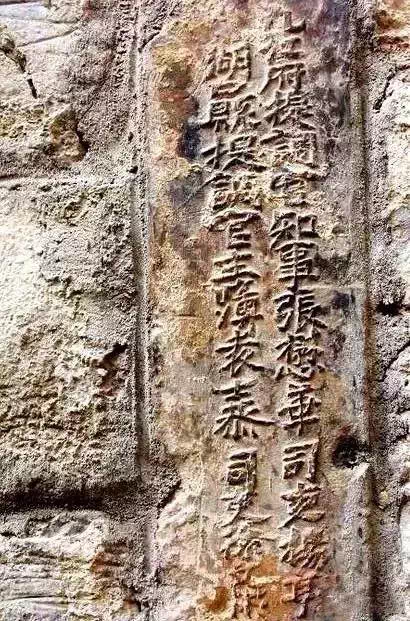 九江府提調官知事張懋華司吏楊亨
湖口縣提調官主簿袁泰司吏